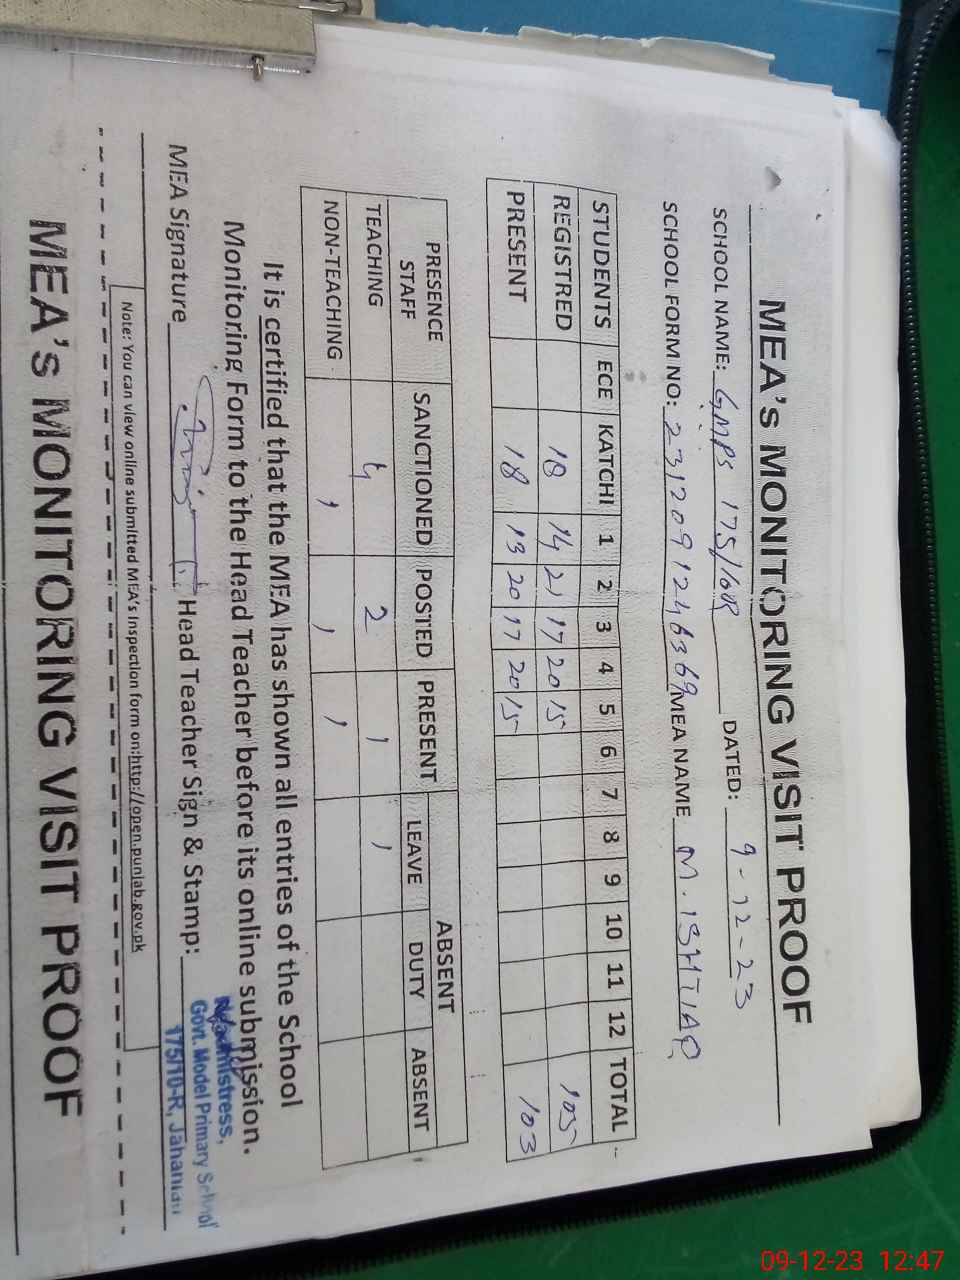 MEA's MONITORING VISIT PROOF
SCHOOL NAME: GMPS 175/10R DATED: 9-12-23
SCHOOL FORM NO: 23120912463 69 MEA NAME M. ISHTIAQ
STUDENTS ECE KATCHI 1 2 3 4 5 6 7 8 9 10 11 12 TOTAL
REGISTRED 18 14 21 17 20 15 105
PRESENT 18 13 20 17 20 15 103
PRESENCE STAFF SANCTIONED POSTED PRESENT ABSENT
LEAVE DUTY ABSENT
TEACHING 4 2 1 1
NON-TEACHING , , ,
It is certified that the MEA has shown all entries of the School
Monitoring Form to the Head Teacher before its online submission.
MEA Signature Head Teacher Sign & Stamp:
Headmistress,
Govt. Model Primary School
175/10-R, Jahanian
Note: You can view online submitted MEA's Inspection form on:http://open.punjab.gov.pk
MEA's MONITORING VISIT PROOF
09-12-23 12:47